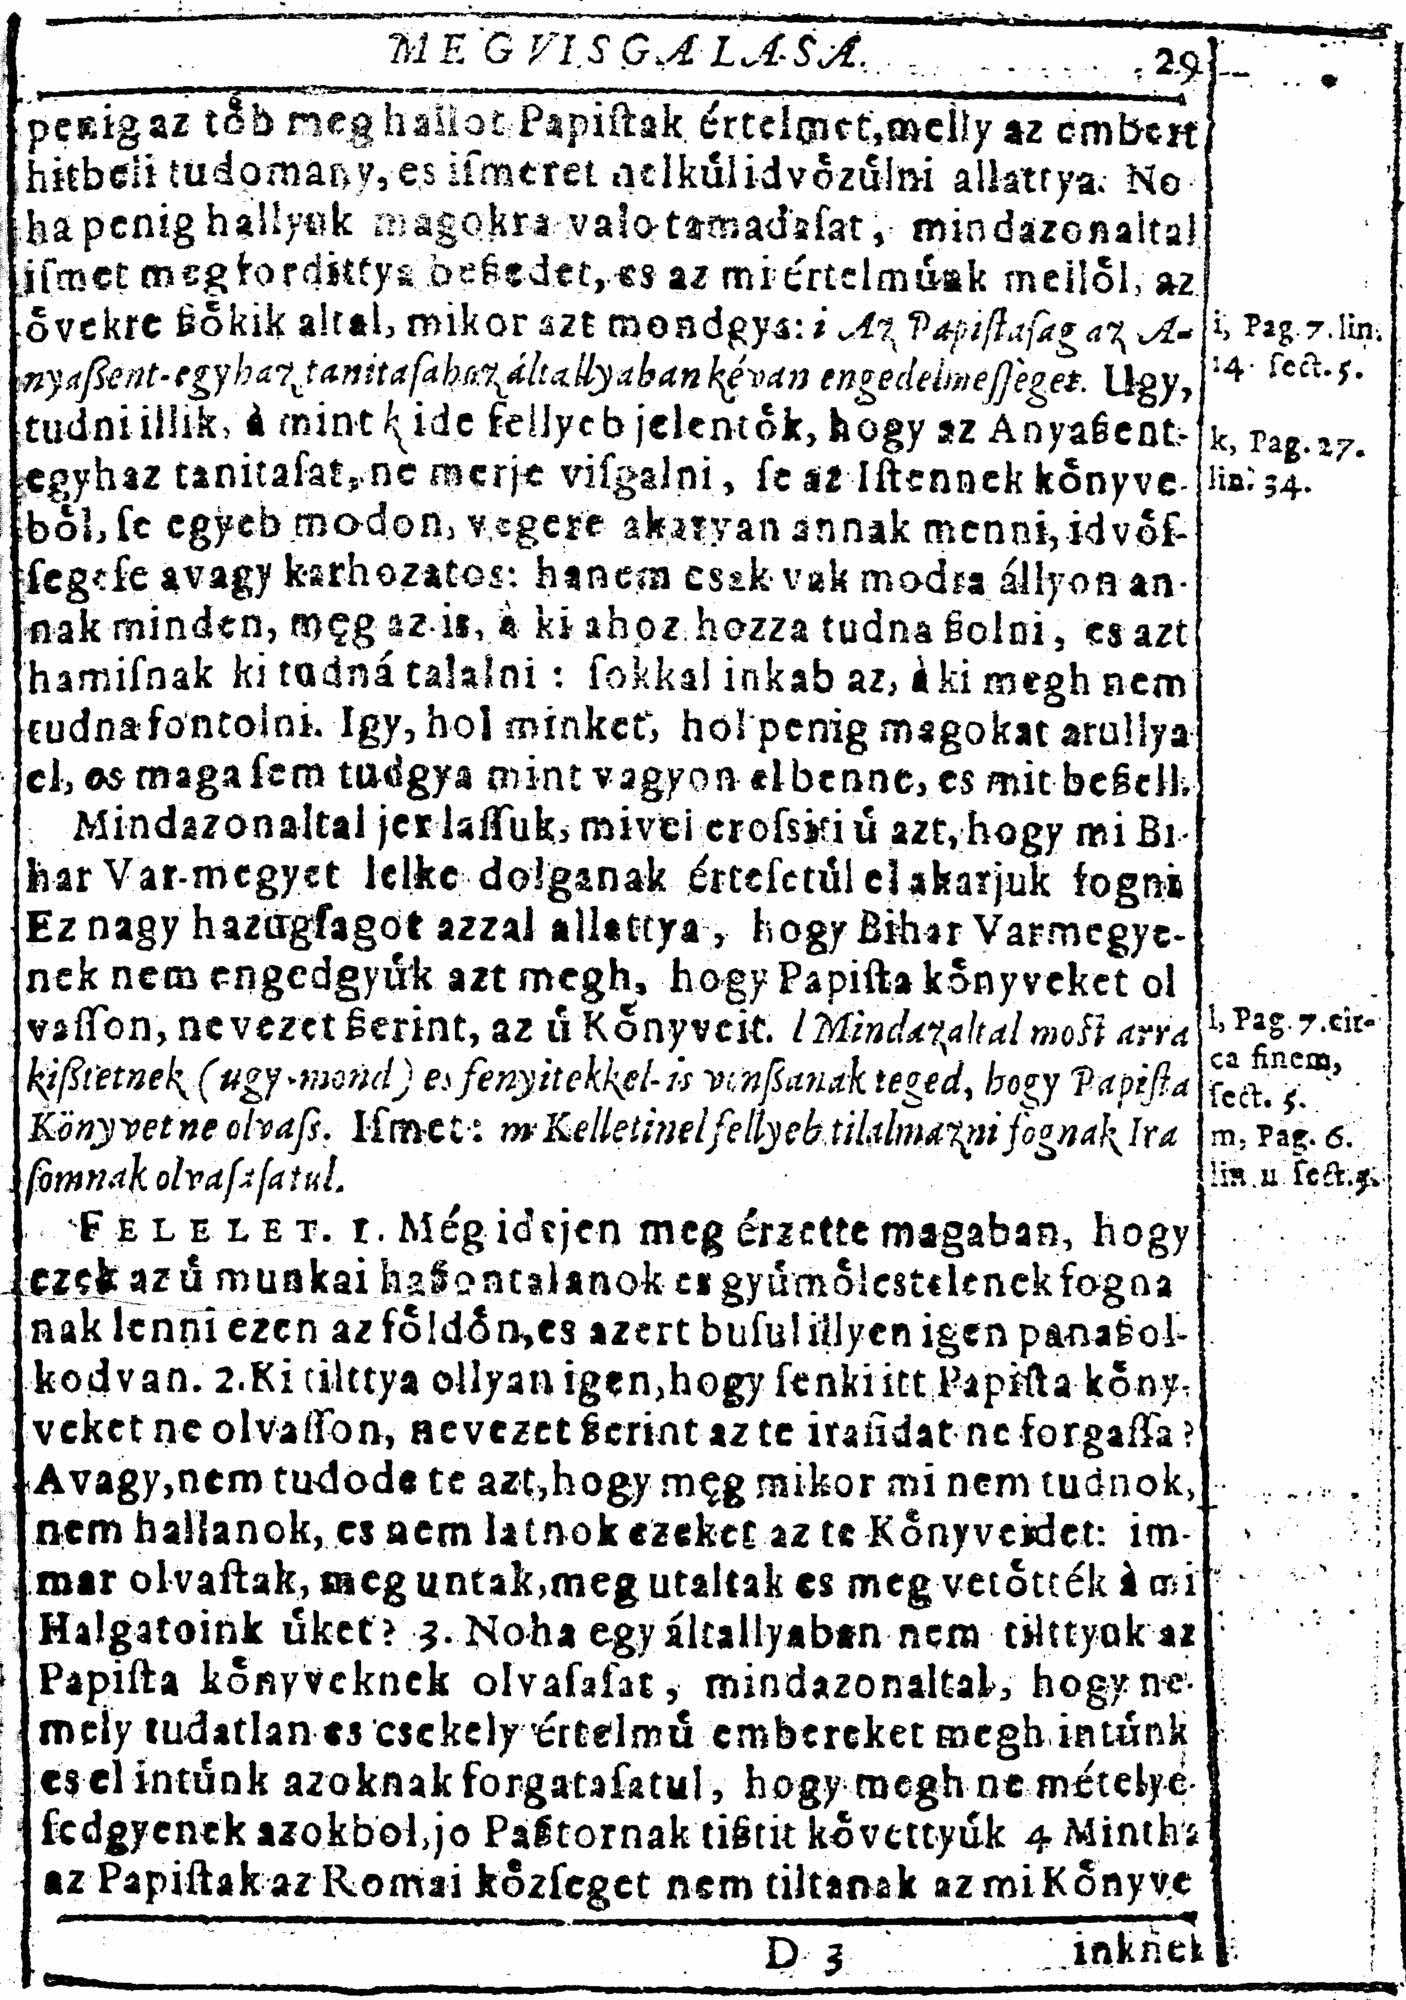 MEGVISGALASA. 29
penig az tôb meg hallot Papiſtak értelmet, melly az embert
hitbeli tudomany, es iſmeret nelkûl idvôzûlni allattya. No
ha penig hallyuk magokra valo tamadaſat, mindazonaltal
iſmet meg fordittya beßedet, es az mi értelmûnk mellôl, az
ôvekre ßôkik altal, mikor azt mondgya: i Az Papiſtaſag az A-
nyaßent-egyhaz tanitaſahoz általlyaban kévan engedelmeſſèget. Ugy,
tudni illik, à mint k ide fellyeb jelentôk, hogy az Anyaßent-
egyhaz tanitaſat, ne merje viſgalni, ſe az Iſtennek kônyve-
bôl, ſe egyeb modon, vegere akaryan annak menni, idvôſ-
ſegeſe avagy karhozatos: hanem csak vak modra állyon an-
nak minden, męg az is, à ki ahoz hozza tudna ßolni, es azt
hamiſnak ki tudná talalni: ſokkal inkab az, à ki megh nem
tudna fontolni. Igy, hol minket, hol penig magokat arullya
el, es maga ſem tudgya mint vagyon el benne, es mit beßell.
Mindazonaltal jer laſſuk, mivel eroſsiti û azt, hogy mi Bi-
har Var-megyet lelke dolganak érteſetûl el akarjuk fogni
Ez nagy hazugſagot azzal allattya, hogy Bihar Varmegye-
nek nem engedgyûk azt megh, hogy Papiſta kônyveket ol
vaſſon, nevezet ßerint, az û Kônyveit. l Mindazaltal moſt arra
kißtetnek (ugy-mond) es fenyitekkel-is vonßanak teged, hogy Papiſta
Könyvet ne olvaſs. Iſmet: m Kelletinel fellyeb tilalmazni fognak Ira
ſomnak olvaſaſatul.
FELELET. 1. Még idejen meg érzette magaban, hogy
ezek az û munkai haßontalanok es gyûmôlcstelenek fogna
nak lenni ezen az fôldôn, es azert buſul illyen igen panaßol-
kodvan. 2. Ki tilttya ollyan igen, hogy ſenki itt Papiſta kôny-
veket ne olvaſſon, nevezet ßerint az te iraſidat ne forgaſſa?
Avagy, nem tudode te azt, hogy męg mikor mi nem tudnok,
nem hallanok, es nem latnok ezeket az te Kônyveidet: im-
mar olvaſtak, meg untak, meg utaltak es meg vetôtték à mi
Halgatoink ûket? 3. Noha egy általlyaban nem tilttyuk az
Papiſta kônyveknek olvaſaſat, mindazonaltal, hogy ne-
mely tudatlan es csekely értelmû embereket megh intûnk
es el intûnk azoknak forgataſatul, hogy megh ne mételye-
ſedgyenek azokbol, jo Paßtornak tißtit kôvettyûk 4 Mintha
az Papiſtak az Romai kôzſeget nem tiltanak az mi Kônyve
D 3 inknek
i, Pag. 7. lin.
14. ſect. 5.
k, Pag. 27.
lin. 34.
l, Pag. 7. cir-
ca finem,
ſect. 5.
m, Pag. 6.
lin. u ſect. 5.